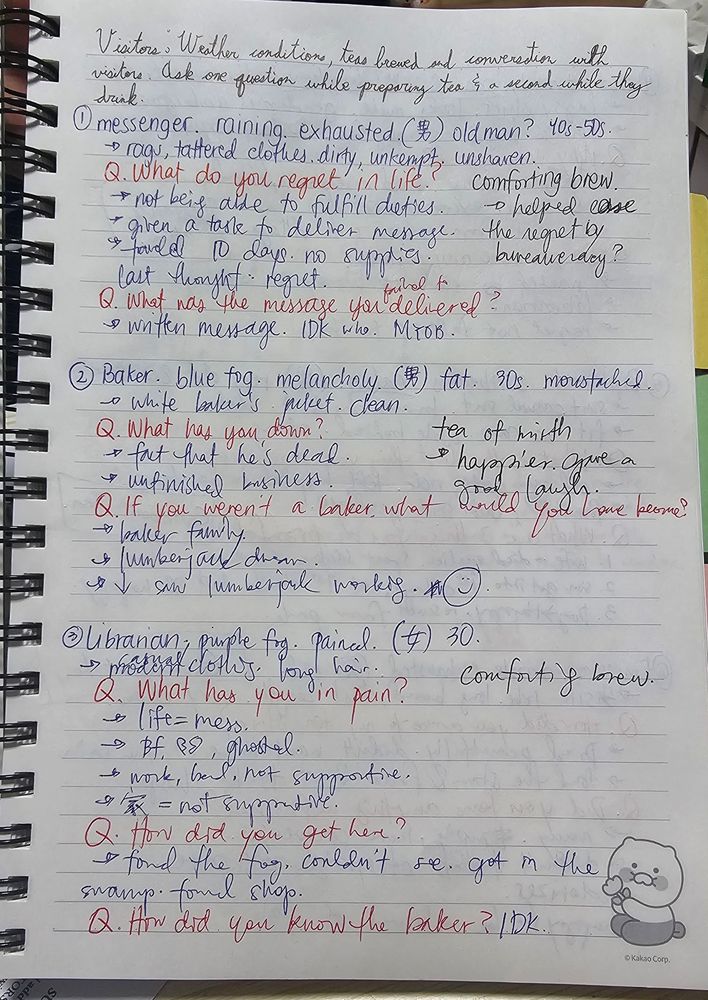 Visitors: Weather conditions, teas brewed and conversation with
visitors. Ask one question while preparing tea & a second while they
drink.
① messenger. raining. exhausted. (男) old man? 40s-50s.
→ rags, tattered clothes. dirty, unkempt. unshaven.
Q. What do you regret in life? comforting brew.
→ not being able to fulfill duties. → helped ease
→ given a task to deliver message. the regret by
→ 10 days. no supplies. bureaucracy?
last thought - regret.
Q. What was the message you failed to delivered?
→ written message. IDK who. MYOB.
② Baker. blue fog. melancholy. (男) fat. 30s. moustached.
→ white baker's jacket. clean.
Q. What has you down? tea of mirth
→ fact that he's dead. → happier. gave a
→ unfinished business. good laugh.
Q. If you weren't a baker, what would you have become?
→ baker family.
→ lumberjack dream.
→ ↓ saw lumberjack working. ☺
③ Librarian, purple fog. pained. (女) 30.
→ modern casual clothes. long hair. comforting brew.
Q. What has you in pain?
→ life = mess.
→ Bf, ghosted.
→ work, bad, not supportive.
→ 家 = not supportive.
Q. How did you get here?
→ fond the fog, couldn't see. got in the
swamp. found shop.
Q. How did you know the baker? IDK.
© Kakao Corp.